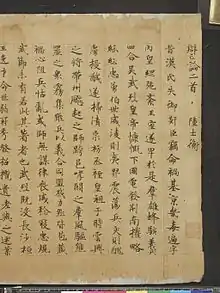 辯亡論二首 陸士衡
昔漢氏失御姧臣竊命禍基京畿毒遍宇
內皇綱弛紊王室遂卑於是羣雄蜂駭義兵
四合吳武烈皇帝慷慨下國電發荊南權略
紛紜忠勇伯世威稜則夷羿震蕩兵交則醜
虜授馘遂掃清宗祊蒸禋皇祖于時雲興
之將帶州飈起之師跨邑哮闞之羣風驅熊
羆之衆霧集雖兵以義合同盟勠力然皆苞藏
禍心阻兵怙亂或師無謀律喪威稔寇忠規
武節未有若此其著者也武烈既沒長沙桓
王逸才命世弱冠秀發招攬遺老與之述業